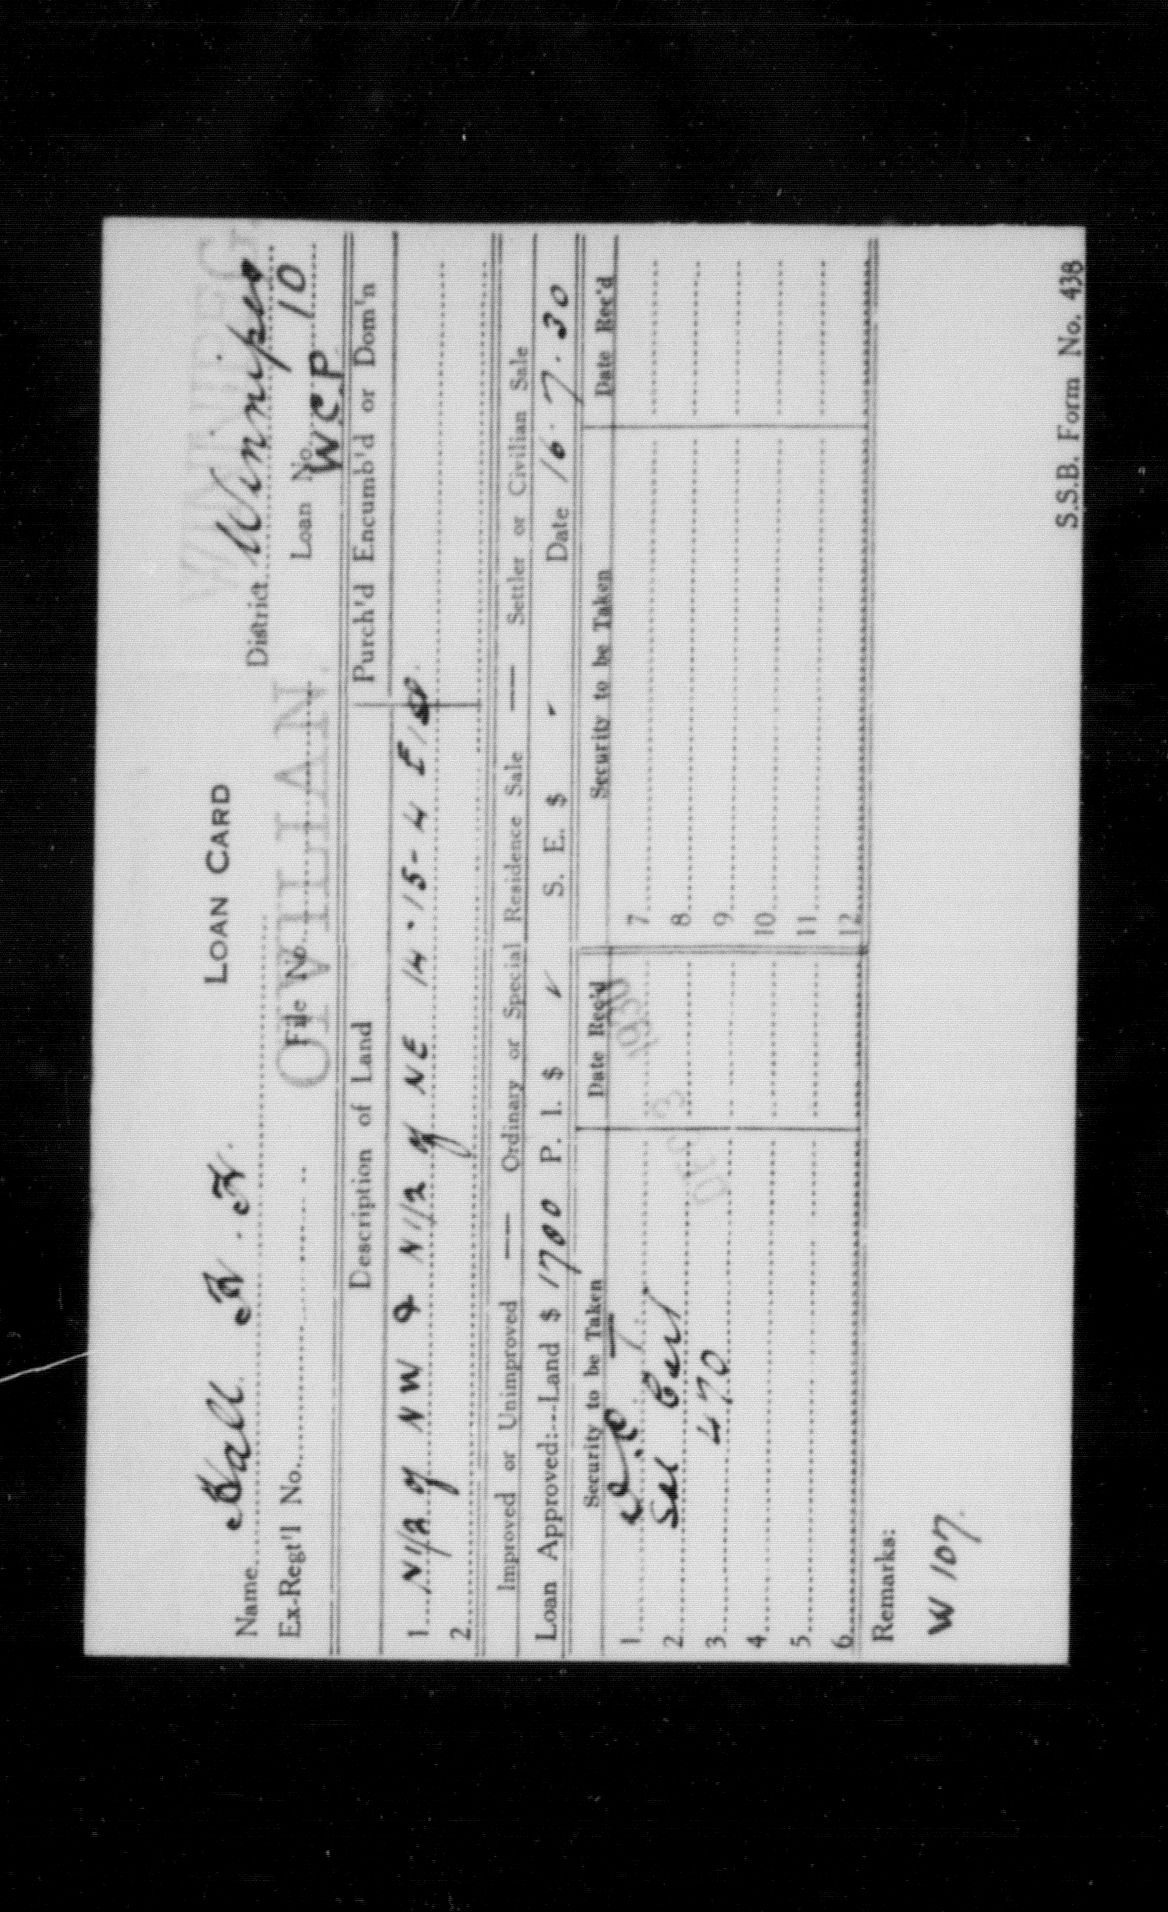 LOAN CARD
WINNIPEG
Name Hall
District Winnipeg
CIVILIAN
Ex-Regt'l No. File No. Loan No. 10
W.C.P
Description of Land Purch'd Encumb'd or Dom'n
1 N1/2 of NW & N1/2 of NE 14-15-4 E1st
2
Improved or Unimproved — Ordinary or Special Residence Sale — Settler or Civilian Sale
Loan Approved:—Land $ 1700 P. I. $ ✓ S. E. $ - Date 16.7.30
Security to be Taken Date Rec'd Security to be Taken Date Rec'd
1 7
2 8
3 470 9
4 10
5 11
6 12
DEC 3 1930
Remarks:
W 107.
S.S.B. Form No. 438